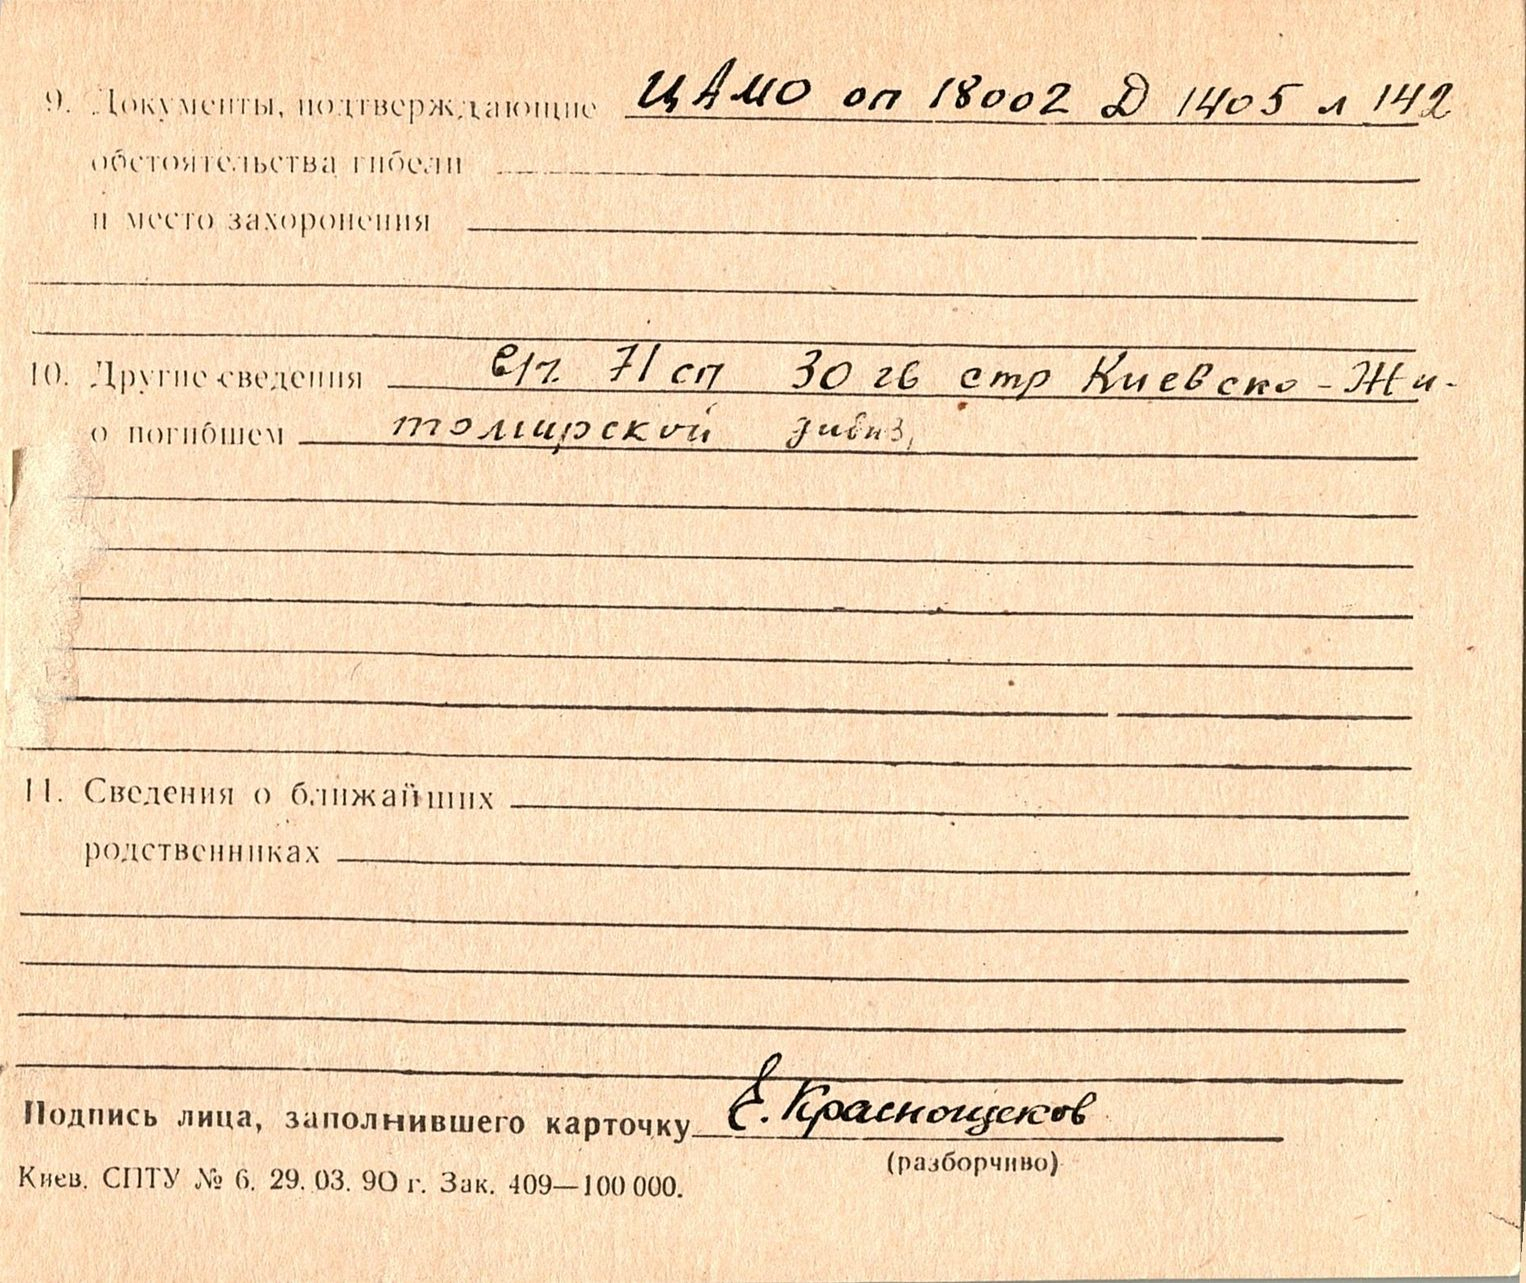 9. Документы, подтверждающие ЦАМО оп 18002 Д 1405 л 142
обстоятельства гибели
и место захоронения
10. Другие сведения 71 сп 30 гв стр Киевско-Жи-
о погибшем томирской дивиз,
11. Сведения о ближайших
родственниках
Подпись лица, заполнившего карточку Е. Краснощеков
(разборчиво)
Киев. СПТУ № 6. 29. 03. 90 г. Зак. 409—100 000.